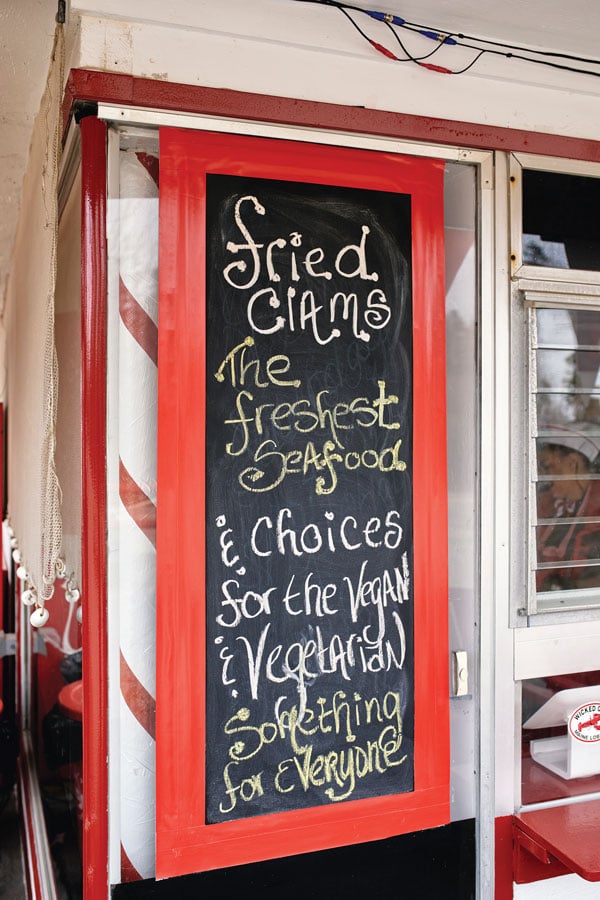 fried
Clams
The
freshest
Seafood
& Choices
for the Vegan
& Vegetarian
Something
for Everyone
WICKED
MAINE LOB